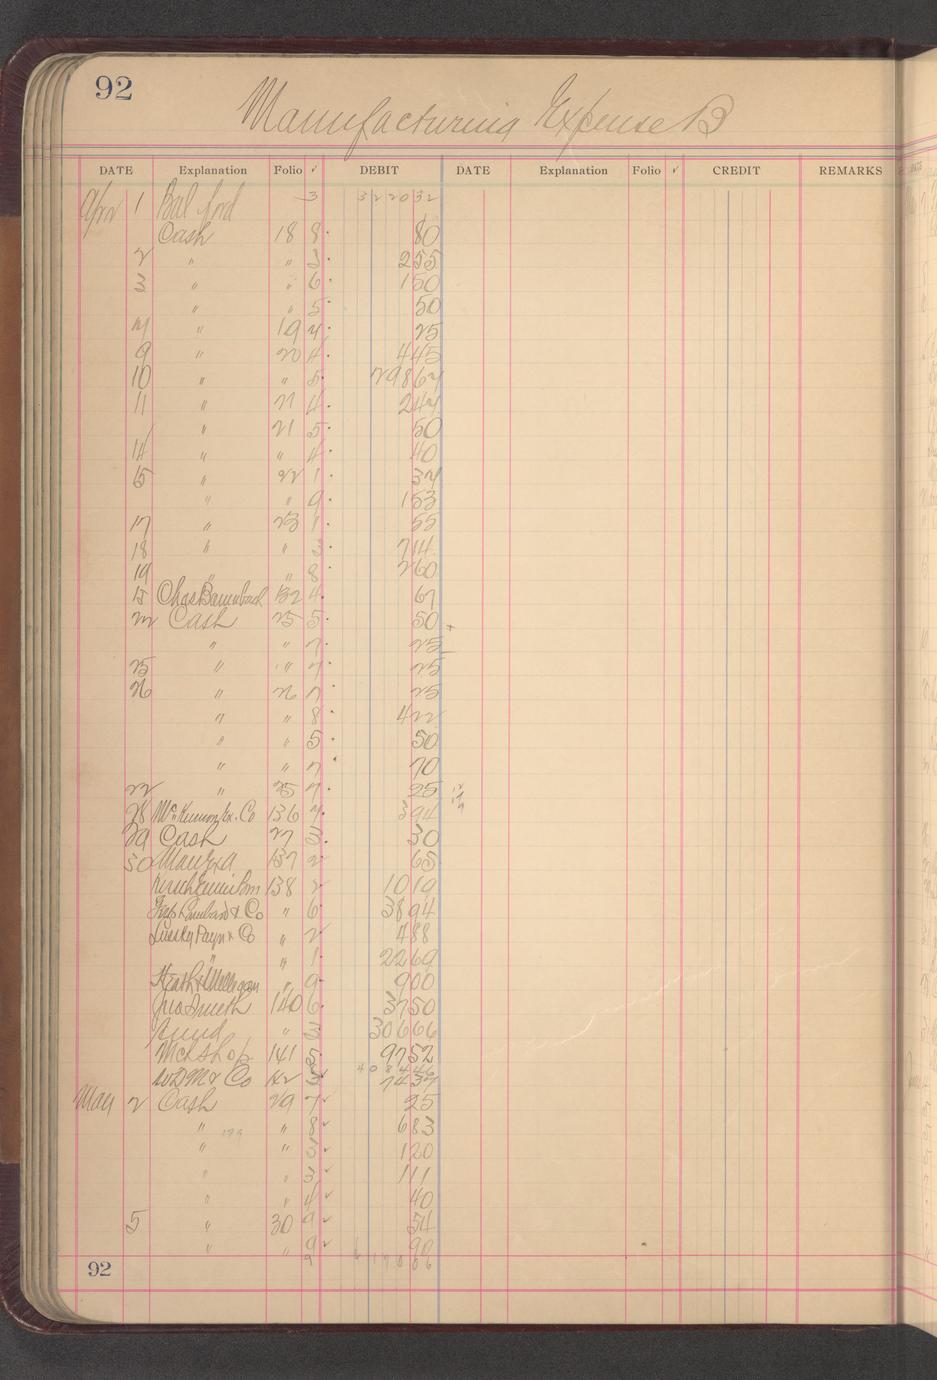 92
Manufacturing Expense B
DATE Explanation Folio ✓ DEBIT DATE Explanation Folio ✓ CREDIT REMARKS
Apr 1 Bal ford 3 322032
Cash 18 8 80
2 " " 3 255
3 " " 6 150
" " 5 50
4 " 19 4 25
9 " 20 4 445
10 " " 5 29864
11 " 21 4 244
" 21 5 50
14 " " 4 40
15 " 22 1 34
" " 9 153
17 " 23 1 55
18 " " 3 714
19 " " 8 260
15 Chas 132 4 67
22 Cash 25 5 50
" " 7 25
25 " " 7 25
26 " 26 7 25
" " 8 422
" " 5 50
" " 7 70
22 " 25 7 25
28 Ex. Co 136 7 394
29 Cash 27 3 30
30 137 2 65
138 2 1019
& Co " 6 3894
Payn & Co " 2 488
" " 1 2269
Heath & Milligan " 9 900
Jno Smeeth 140 6 3750
" 3 30666
Mch Shop 141 5 9752
408446
W D M & Co 142 3 7437
May 2 Cash 29 7 25
" " 8 683
199
" " 3 120
" " 3 111
" " 4 40
5 " 30 9 54
" " 9 90
92